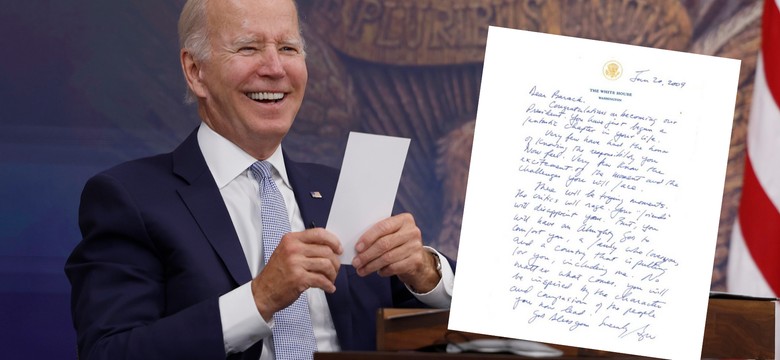 PLURIBUS
THE WHITE HOUSE
WASHINGTON
Jan 20, 2009
Dear Barack,
Congratulations on becoming our
President. You have just begun a
fantastic chapter in your life.
Very few have had the honor
of knowing the responsibility you
now feel. Very few know the
excitement of the moment and the
challenges you will face.
There will be trying moments.
The critics will rage. Your "friends"
will disappoint you. But, you
will have an Almighty God to
comfort you, a family who loves you,
and a country that is pulling
for you, including me. No
matter what comes, you will
be inspired by the character
and compassion of the people
you now lead.
God bless you. Sincerely,